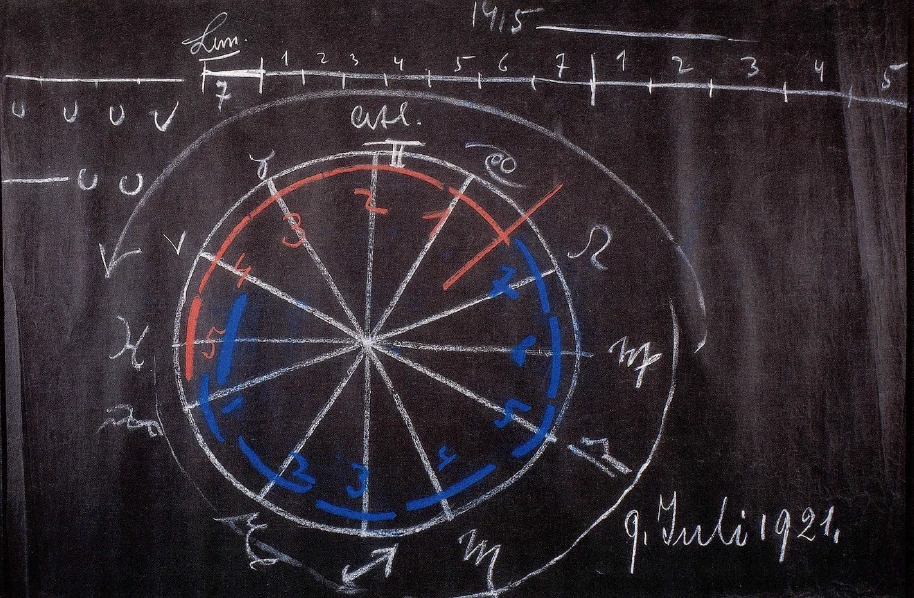 1915
Lem.
1 2 3 4 5 6 7 1 2 3 4 5
7
Atl.
♊
♋
♉
2
1
3
♌
4
7
5
6
♍
1
5
♎
2
3
4
♏
9. Juli 1921.